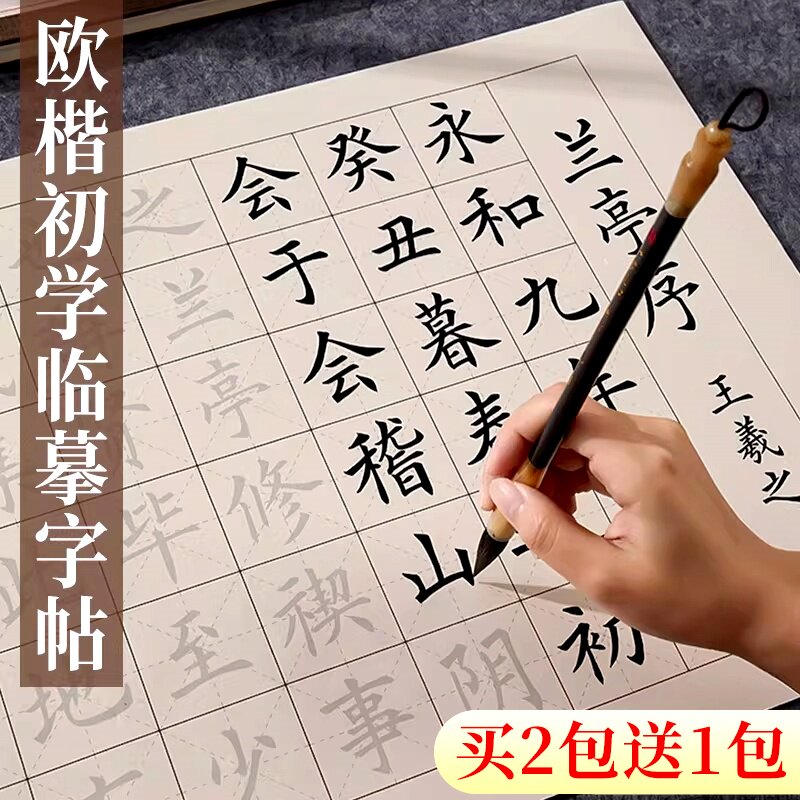 欧楷初学临摹字帖
兰亭序
王羲之
永和九
癸丑暮
初
会于会稽山阴
之兰亭修禊事
毕至少
地
买2包送1包